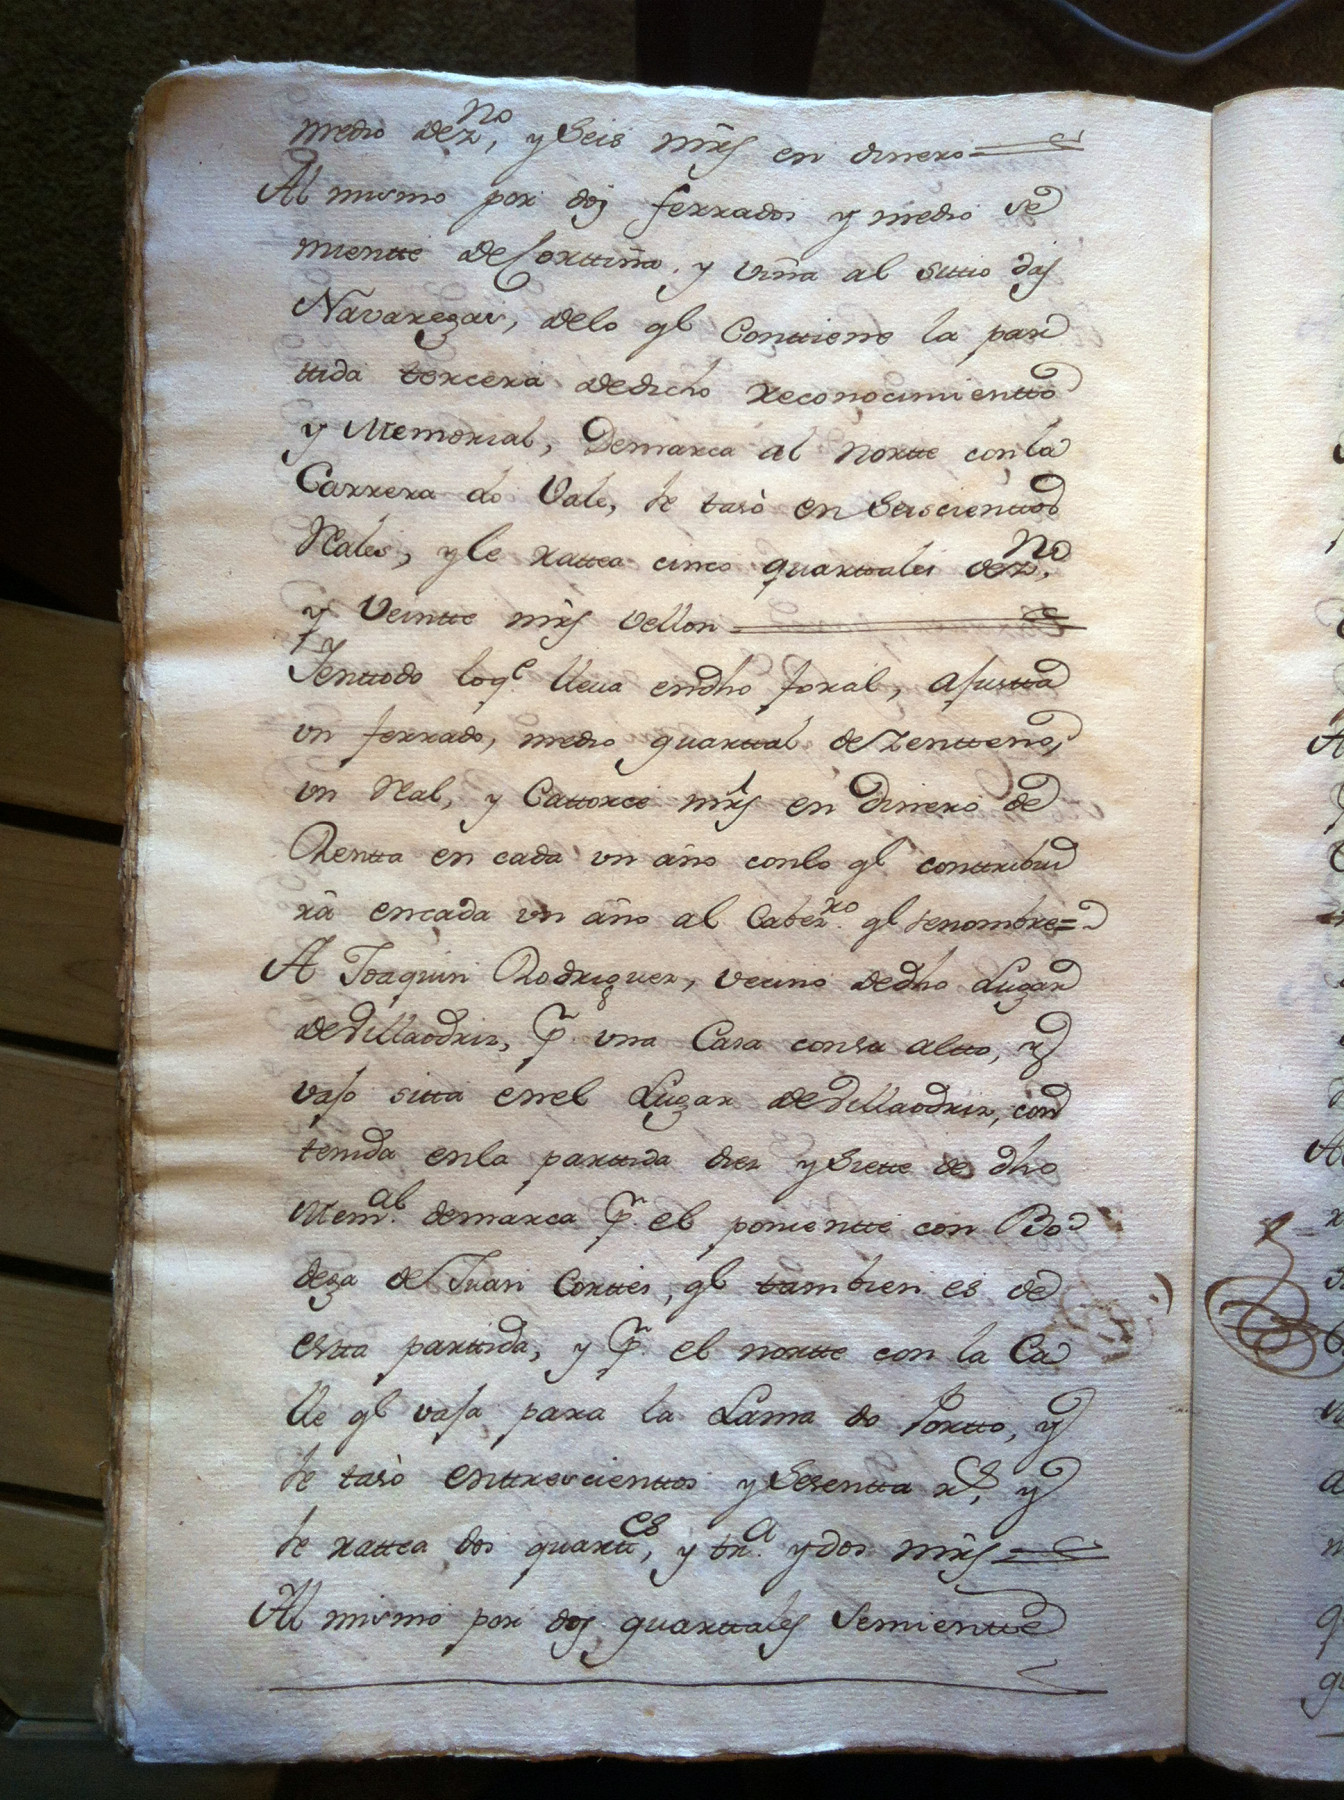 medio dez.no, y Seis mrs en dinero =
Al mismo por dos ferrados y medio se
miente de Corttiña, y viña al sittio das
Navaregas, delo ql Conttiene la par
ttida tercera dedicho reconocimientto
y Memorial, Demarca al Nortte con la
Carrera do Vale, se tasò en Seiscienttos
Rales, y le rattea cinco quarttales dez.no
y Veintte mrs vellon =
Y enttodo loq.e lleva endho foral, ajustta
un ferrado, medio quarttal de Zentteno,
un Ral, y Cattorce mrs en Dinero de
Rentta en cada un año conlo ql conttribui
rà encada un año al Cabez.ro ql senombre =
A Joaquin Rodriguez, vecino dedho Lugar
de Villaodriz, p.r una Casa consu altto, y
vajo sitta enel Lugar de Villaodriz, con
tenida enla parttida diez y Siette de dho
Mem.al demarca p.r el ponientte con Bo
dega de Juan Corttes, ql tambien es de
estta parttida, y p.r el nortte con la Ca
lle ql vaja para la Lama do Portto, y
se tasò enttrescienttos y Sesentta r.s, y
se rattea dos quartt.es, y tr.a y dos mrs =
Al mismo por dos quarttales Semientte